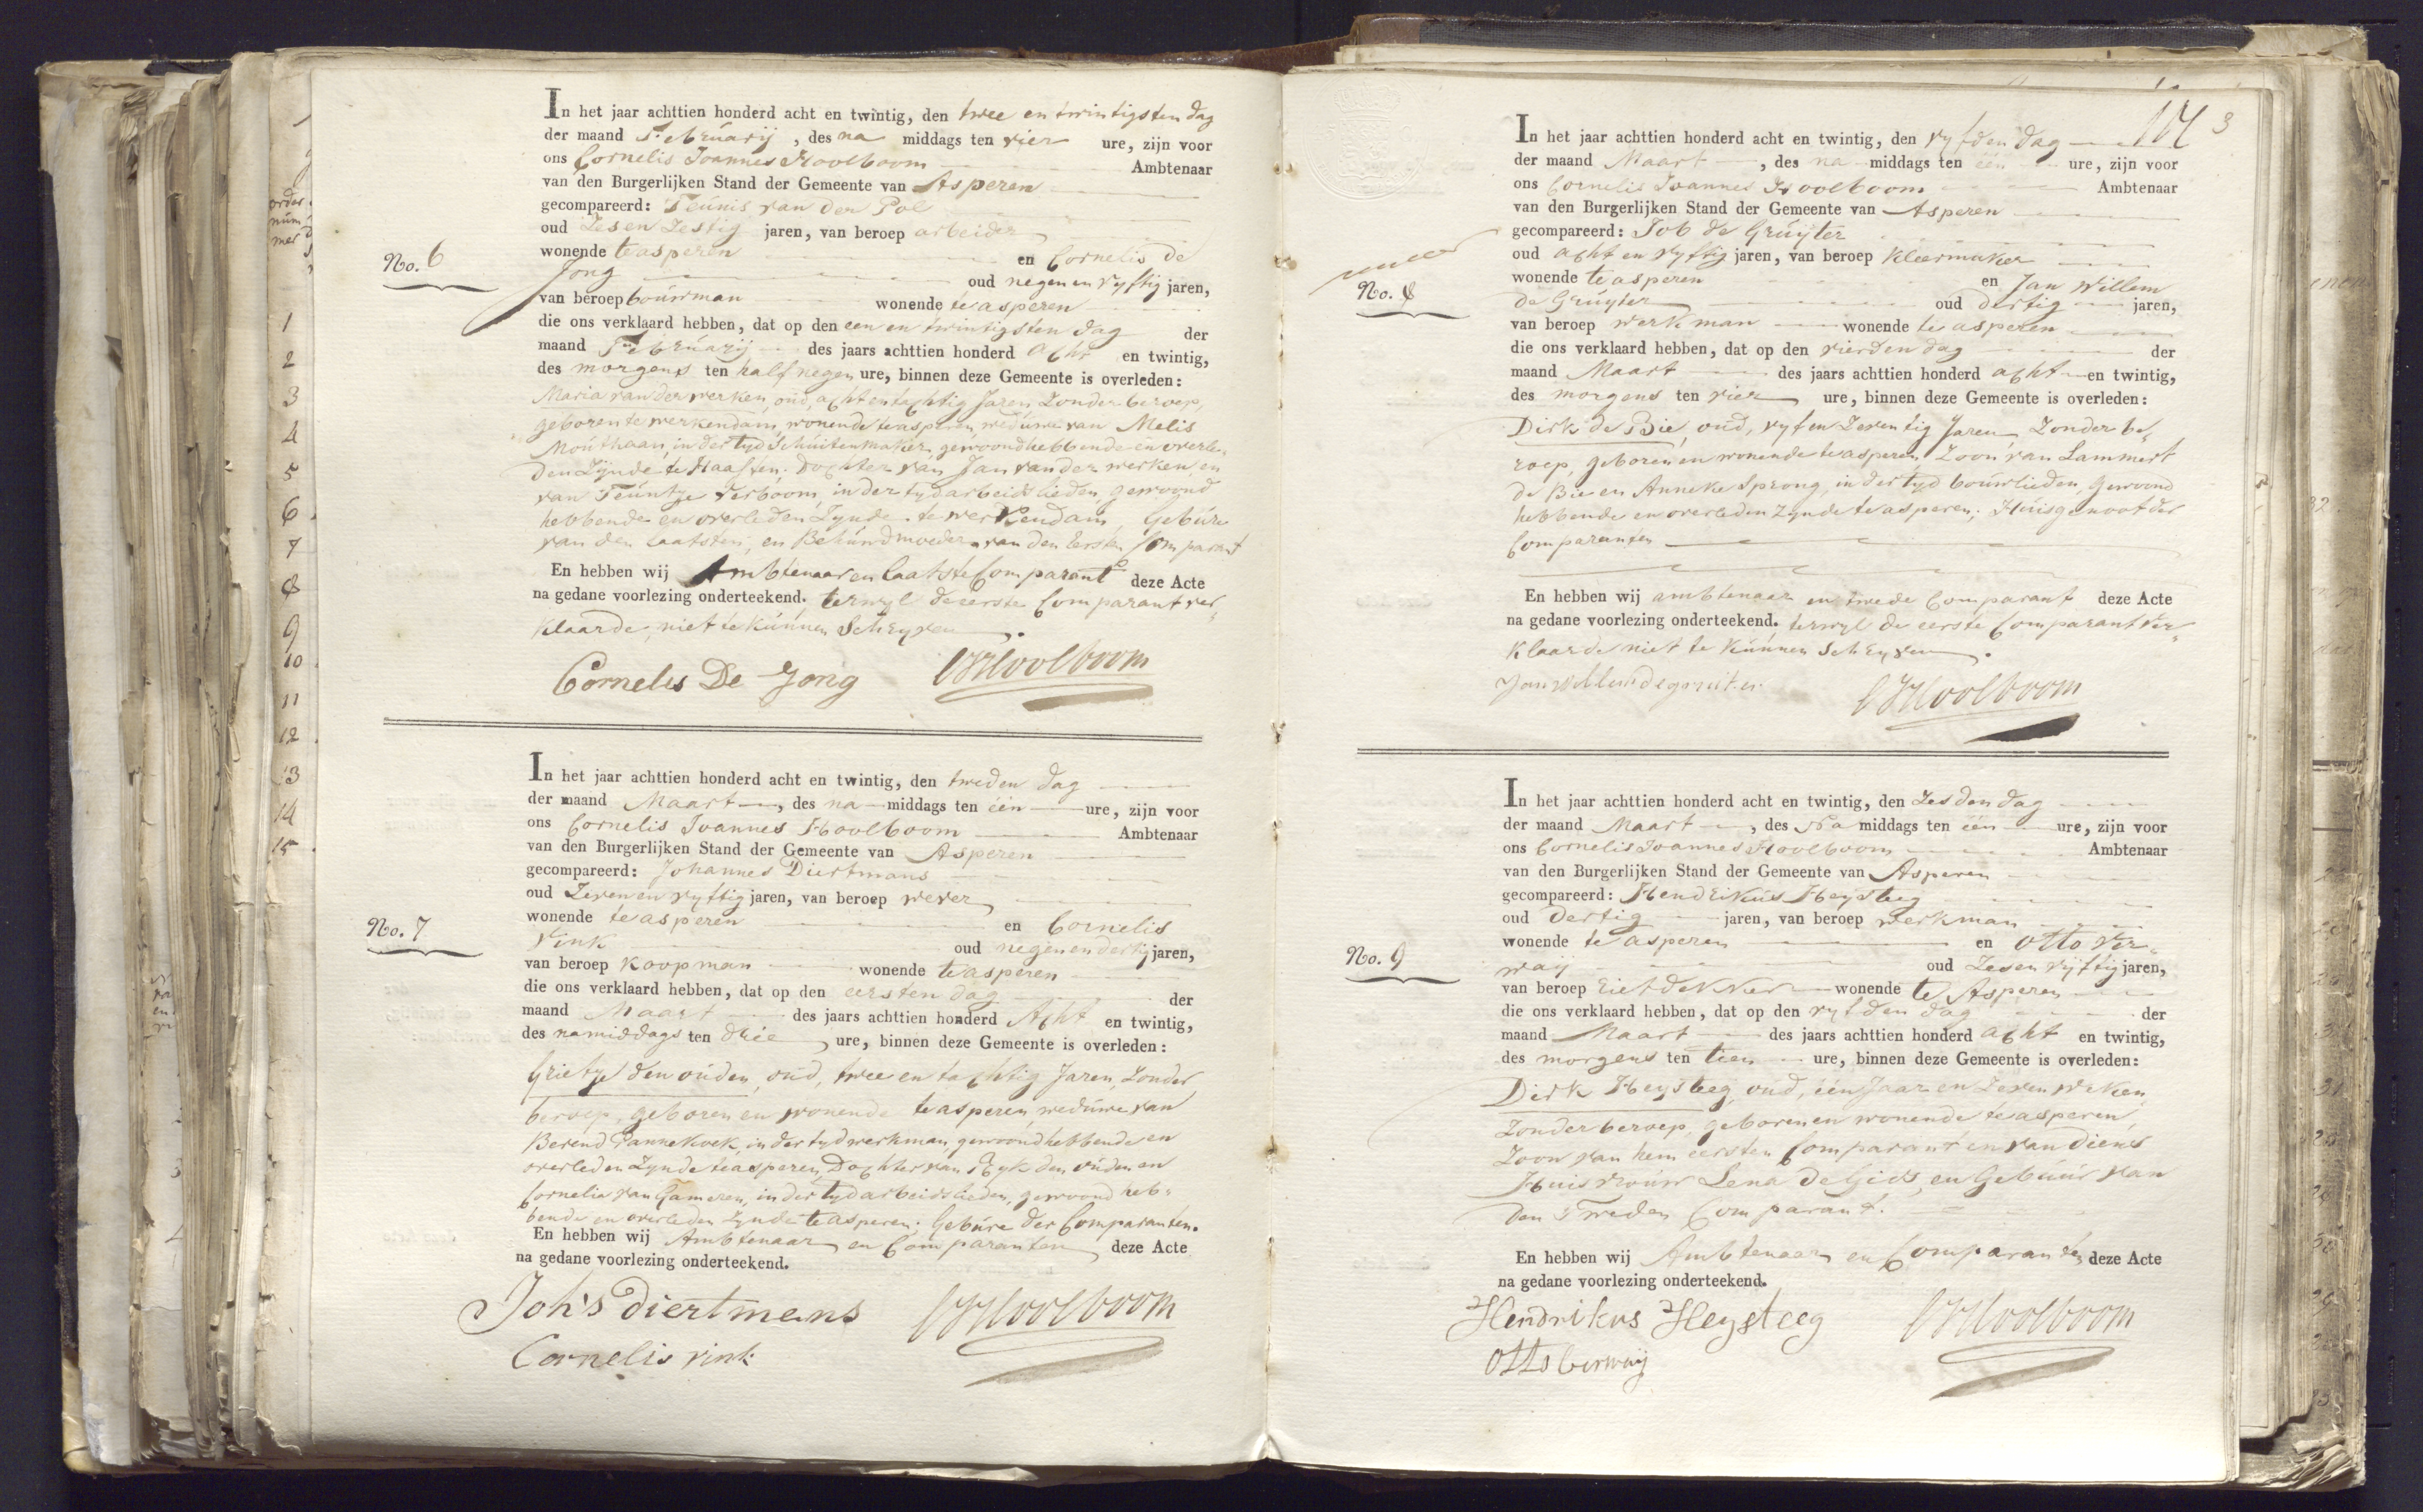 In het jaar achttien honderd acht en twintig, den twee en twintigsten dag
der maand Februarij , des na middags ten vier ure, zijn voor
ons Cornelis Joannes Hoolboom Ambtenaar
van den Burgerlijken Stand der Gemeente van Asperen
gecompareerd: Teunis van der Pol
oud Zes en Zestig jaren, van beroep arbeider
wonende te asperen en Cornelis de
No. 6
Jong oud negen en vyftig jaren,
van beroep bouwman wonende te asperen
die ons verklaard hebben, dat op den een en twintigsten dag der
maand Februarij des jaars achttien honderd acht en twintig,
des morgens ten half negen ure, binnen deze Gemeente is overleden:
Maria van der werken, oud, acht en tachtig Jaren, Zonder beroep,
geboren te werkendam, wonende te asperen, weduwe van Melis
Mouthaan, in der tyd Schuitenmaker, gewoond hebbende en overle„
den Zÿnde te Haaften: dochter van Jan van der werken en
van Teuntje verboom, in der tyd arbeidslieden, gewoond
hebbende en overleden Zynde te werkendam, Gebure
van den laatsten, en Behuwdmoeder van den Eersten Comparant
En hebben wij Ambtenaar en laatste Comparant deze Acte
na gedane voorlezing onderteekend. terwyl de eerste Comparant ver„
klaarde, niet te kunnen Schryven.
Cornelis De Jong CJHoolboom
In het jaar achttien honderd acht en twintig, den tweden dag
der maand Maart , des na middags ten één ure, zijn voor
ons Cornelis Joannes Hoolboom Ambtenaar
van den Burgerlijken Stand der Gemeente van Asperen
gecompareerd: Johannes Diertmans
oud Zeven en vyftig jaren, van beroep wever
wonende te asperen en Cornelis
No. 7
Vink oud negen en dertig jaren,
van beroep koopman wonende te asperen
die ons verklaard hebben, dat op den eersten dag der
maand Maart des jaars achttien honderd Acht en twintig,
des namiddags ten drie ure, binnen deze Gemeente is overleden:
Grietje den ouden, oud, twee en tachtig Jaren, Zonder
beroep, geboren en wonende te asperen, weduwe van
Berend Pannekoek, in der tyd werkman, gewoond hebbende en
overleden Zynde te asperen, Dochter van Eyk den ouden en
Cornelia van Gameren, in der tyd arbeidslieden, gewoond heb„
bende en overleden Zynde te asperen; Gebure der Comparanten.
En hebben wij Ambtenaar en Comparanten deze Acte
na gedane voorlezing onderteekend.
Joh's diertmans CJHoolboom
Cornelis vink
3
In het jaar achttien honderd acht en twintig, den vyfden dag
der maand Maart , des na middags ten één ure, zijn voor
ons Cornelis Joannes Hoolboom Ambtenaar
van den Burgerlijken Stand der Gemeente van Asperen
gecompareerd: Job de Gruÿter
oud acht en vyftig jaren, van beroep kleermaker
wonende te asperen en Jan Willem
No. 8
de Gruÿter oud dertig jaren,
van beroep werkman wonende te asperen
die ons verklaard hebben, dat op den vierden dag der
maand Maart des jaars achttien honderd acht en twintig,
des morgens ten vier ure, binnen deze Gemeente is overleden:
Dirk de Bie, oud, vyf en Zeventig Jaren, Zonder be„
roep, geboren en wonende te asperen, Zoon van Lammert
de Bie en Anneke Sprong, in der tyd bouwlieden, Gewoond
hebbende en overleden Zynde te asperen; Huisgenoot der
Comparanten
En hebben wij ambtenaar en twede Comparant deze Acte
na gedane voorlezing onderteekend. terwyl de eerste Comparant ver„
klaarde niet te kunnen Schryven.
Jan willem degruiter CJHoolboom
In het jaar achttien honderd acht en twintig, den Zesden dag
der maand Maart , des Na middags ten één ure, zijn voor
ons Cornelis Joannes Hoolboom Ambtenaar
van den Burgerlijken Stand der Gemeente van Asperen
gecompareerd: Hendrikus Heysteeg
oud dertig jaren, van beroep werkman
wonende te asperen en Otto Ver„
No. 9
waij oud Zes en vijftig jaren,
van beroep rietdekker wonende te Asperen
die ons verklaard hebben, dat op den vyfden dag der
maand Maart des jaars achttien honderd acht en twintig,
des morgens ten tien ure, binnen deze Gemeente is overleden:
Dirk Heysteeg, oud, één Jaar en Zeven weken,
Zonder beroep, geboren en wonende te asperen,
Zoon van hem eersten Comparant en van diens
Huisvrouw Lena de Gids, en Gebuur van
den Tweden Comparant.
En hebben wij Ambtenaar en Comparanten deze Acte
na gedane voorlezing onderteekend.
Hendrikus Heysteeg CJHoolboom
Otto Verwaij
order
num
mer
1
2
3
4
5
6
7
8
9
10
11
12
13
14
15